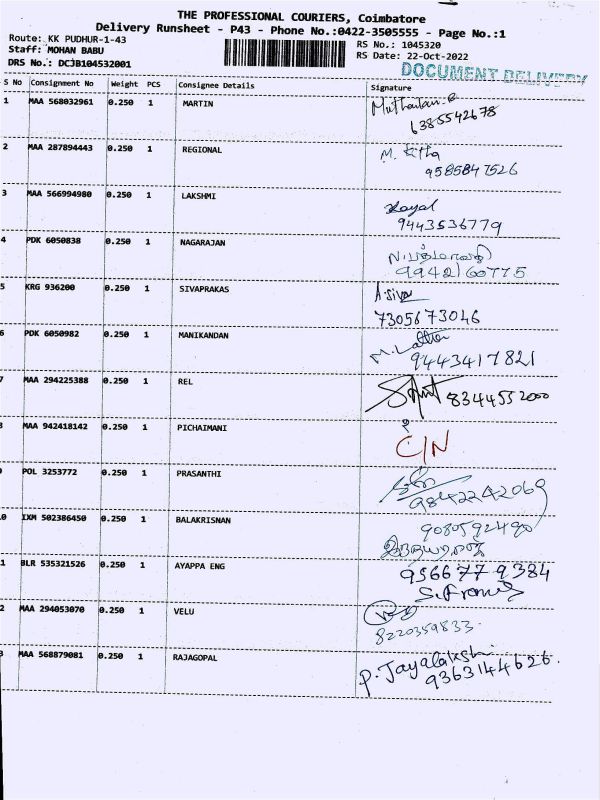 THE PROFESSIONAL COURIERS, Coimbatore
Delivery Runsheet - P43 - Phone No.:0422-3505555 - Page No.:1
Route: KK PUDHUR-1-43 RS No.: 1045320
Staff: MOHAN BABU RS Date: 22-Oct-2022
DRS No.: DCJB104532001 DOCUMENT DELIVERY
S No Consignment No Weight PCS Consignee Details Signature
1 MAA 568032961 0.250 1 MARTIN
6385542678
2 MAA 287894443 0.250 1 REGIONAL M.
9585847526
3 MAA 566994980 0.250 1 LAKSHMI
9443536779
4 PDK 6050838 0.250 1 NAGARAJAN
9942160775
5 KRG 936200 0.250 1 SIVAPRAKAS A.Siva
7305673046
6 PDK 6050982 0.250 1 MANIKANDAN
9443417821
7 MAA 294225388 0.250 1 REL 8344552000
8 MAA 942418142 0.250 1 PICHAIMANI
C/N
9 POL 3253772 0.250 1 PRASANTHI
9842242069
0 IXM 502386450 0.250 1 BALAKRISNAN 9080592490
1 BLR 535321526 0.250 1 AYAPPA ENG 9566779384
2 MAA 294053070 0.250 1 VELU
8220359833
3 MAA 568879081 0.250 1 RAJAGOPAL P. Jayalakshmi
9363144626